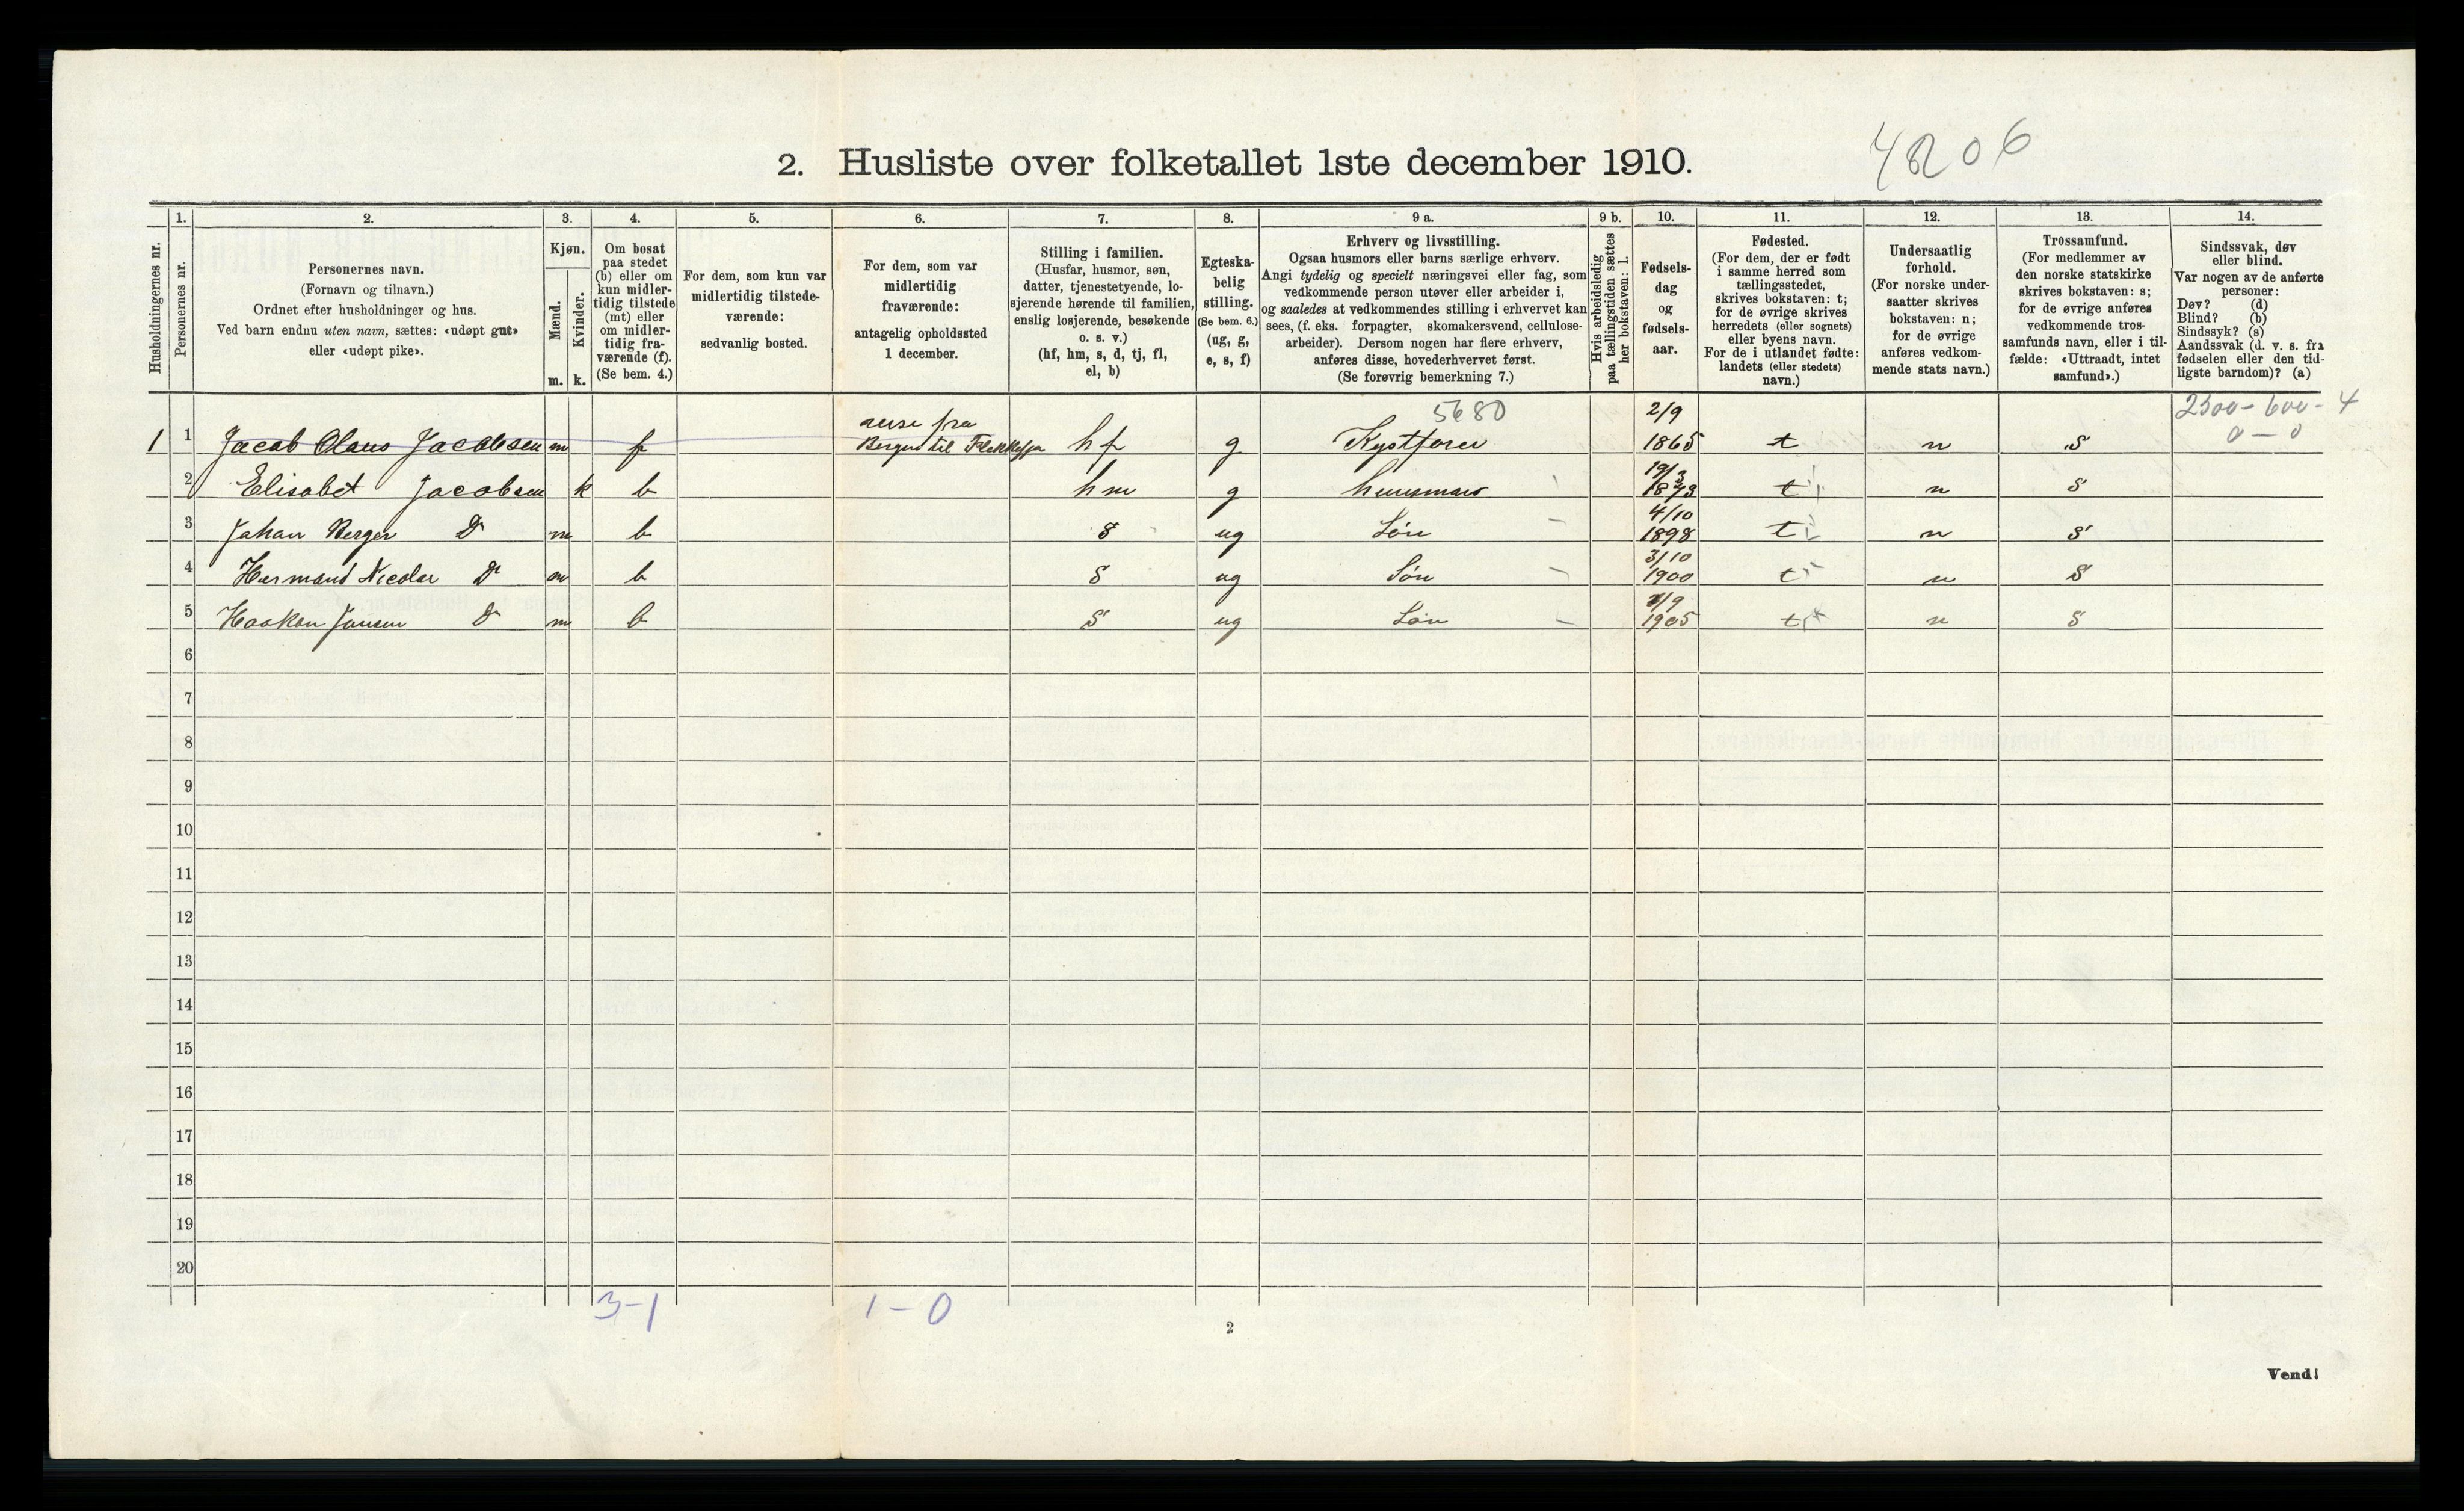 4206
2. Husliste over folketallet 1ste december 1910.
Husholdningernes nr.
1.
Personernes nr.
2.
Personernes navn.
(Fornavn og tilnavn.)
Ordnet efter husholdninger og hus.
Ved barn endnu uten navn, sættes: «udøpt gut»
eller «udøpt pike».
3.
Kjøn.
Mænd.
m.
Kvinder.
k.
4.
Om bosat
paa stedet
(b) eller om
kun midler-
tidig tilstede
(mt) eller
om midler-
tidig fra-
værende (f).
(Se bem. 4.)
5.
For dem, som kun var
midlertidig tilstede-
værende:
sedvanlig bosted.
6.
For dem, som var
midlertidig
fraværende:
antagelig opholdssted
1 december.
7.
Stilling i familien.
(Husfar, husmor, søn,
datter, tjenestetyende, lo-
sjerende hørende til familien,
enslig losjerende, besøkende
o. s. v.)
(hf, hm, s, d, tj, fl,
el, b)
8.
Egteska-
belig
stilling.
(Se bem. 6.)
(ug, g,
e, s, f)
9 a.
Erhverv og livsstilling.
Ogsaa husmors eller barns særlige erhverv.
Angi tydelig og specielt næringsvei eller fag, som
vedkommende person utøver eller arbeider i,
og saaledes at vedkommendes stilling i erhvervet kan
sees, (f. eks. forpagter, skomakersvend, cellulose-
arbeider). Dersom nogen har flere erhverv,
anføres disse, hovederhvervet først.
(Se forøvrig bemerkning 7.)
9 b.
Hvis arbeidsledig
paa tællingstiden sættes
her bokstaven: l.
10.
Fødsels-
dag
og
fødsels-
aar.
11.
Fødested.
(For dem, der er født
i samme herred som
tællingsstedet,
skrives bokstaven: t;
for de øvrige skrives
herredets (eller sognets)
eller byens navn.
For de i utlandet fødte:
landets (eller stedets)
navn.)
12.
Undersaatlig
forhold.
(For norske under-
saatter skrives
bokstaven: n;
for de øvrige
anføres vedkom-
mende stats navn.)
13.
Trossamfund.
(For medlemmer av
den norske statskirke
skrives bokstaven: s;
for de øvrige anføres
vedkommende tros-
samfunds navn, eller i til-
fælde: «Uttraadt, intet
samfund».)
14.
Sindssvak, døv
eller blind.
Var nogen av de anførte
personer:
Døv? (d)
Blind? (b)
Sindssyk? (s)
Aandssvak (d. v. s. fra
fødselen eller den tid-
ligste barndom)? (a)
5680 2/9 2300-600-4
1 1 Jacob Olaus Jacobsen m f reise fra Bergen til Flekkefjor hf g Kystfører 1865 t n S 0-0
2 Elisabet Jacobsen k b hm g huusmor 19/3 1873 t n S
3 Johan Berger Do m b s ug Søn 4/10 1898 t n S
4 Hermand Nicolai Do m b S ug Søn 3/10 1900 t n S
5 Haakon Jansen Do m b S ug Søn /9 1905 t n S
6
7
8
9
10
11
12
13
14
15
16
17
18
19
20
3-1 1-0
2
Vend!